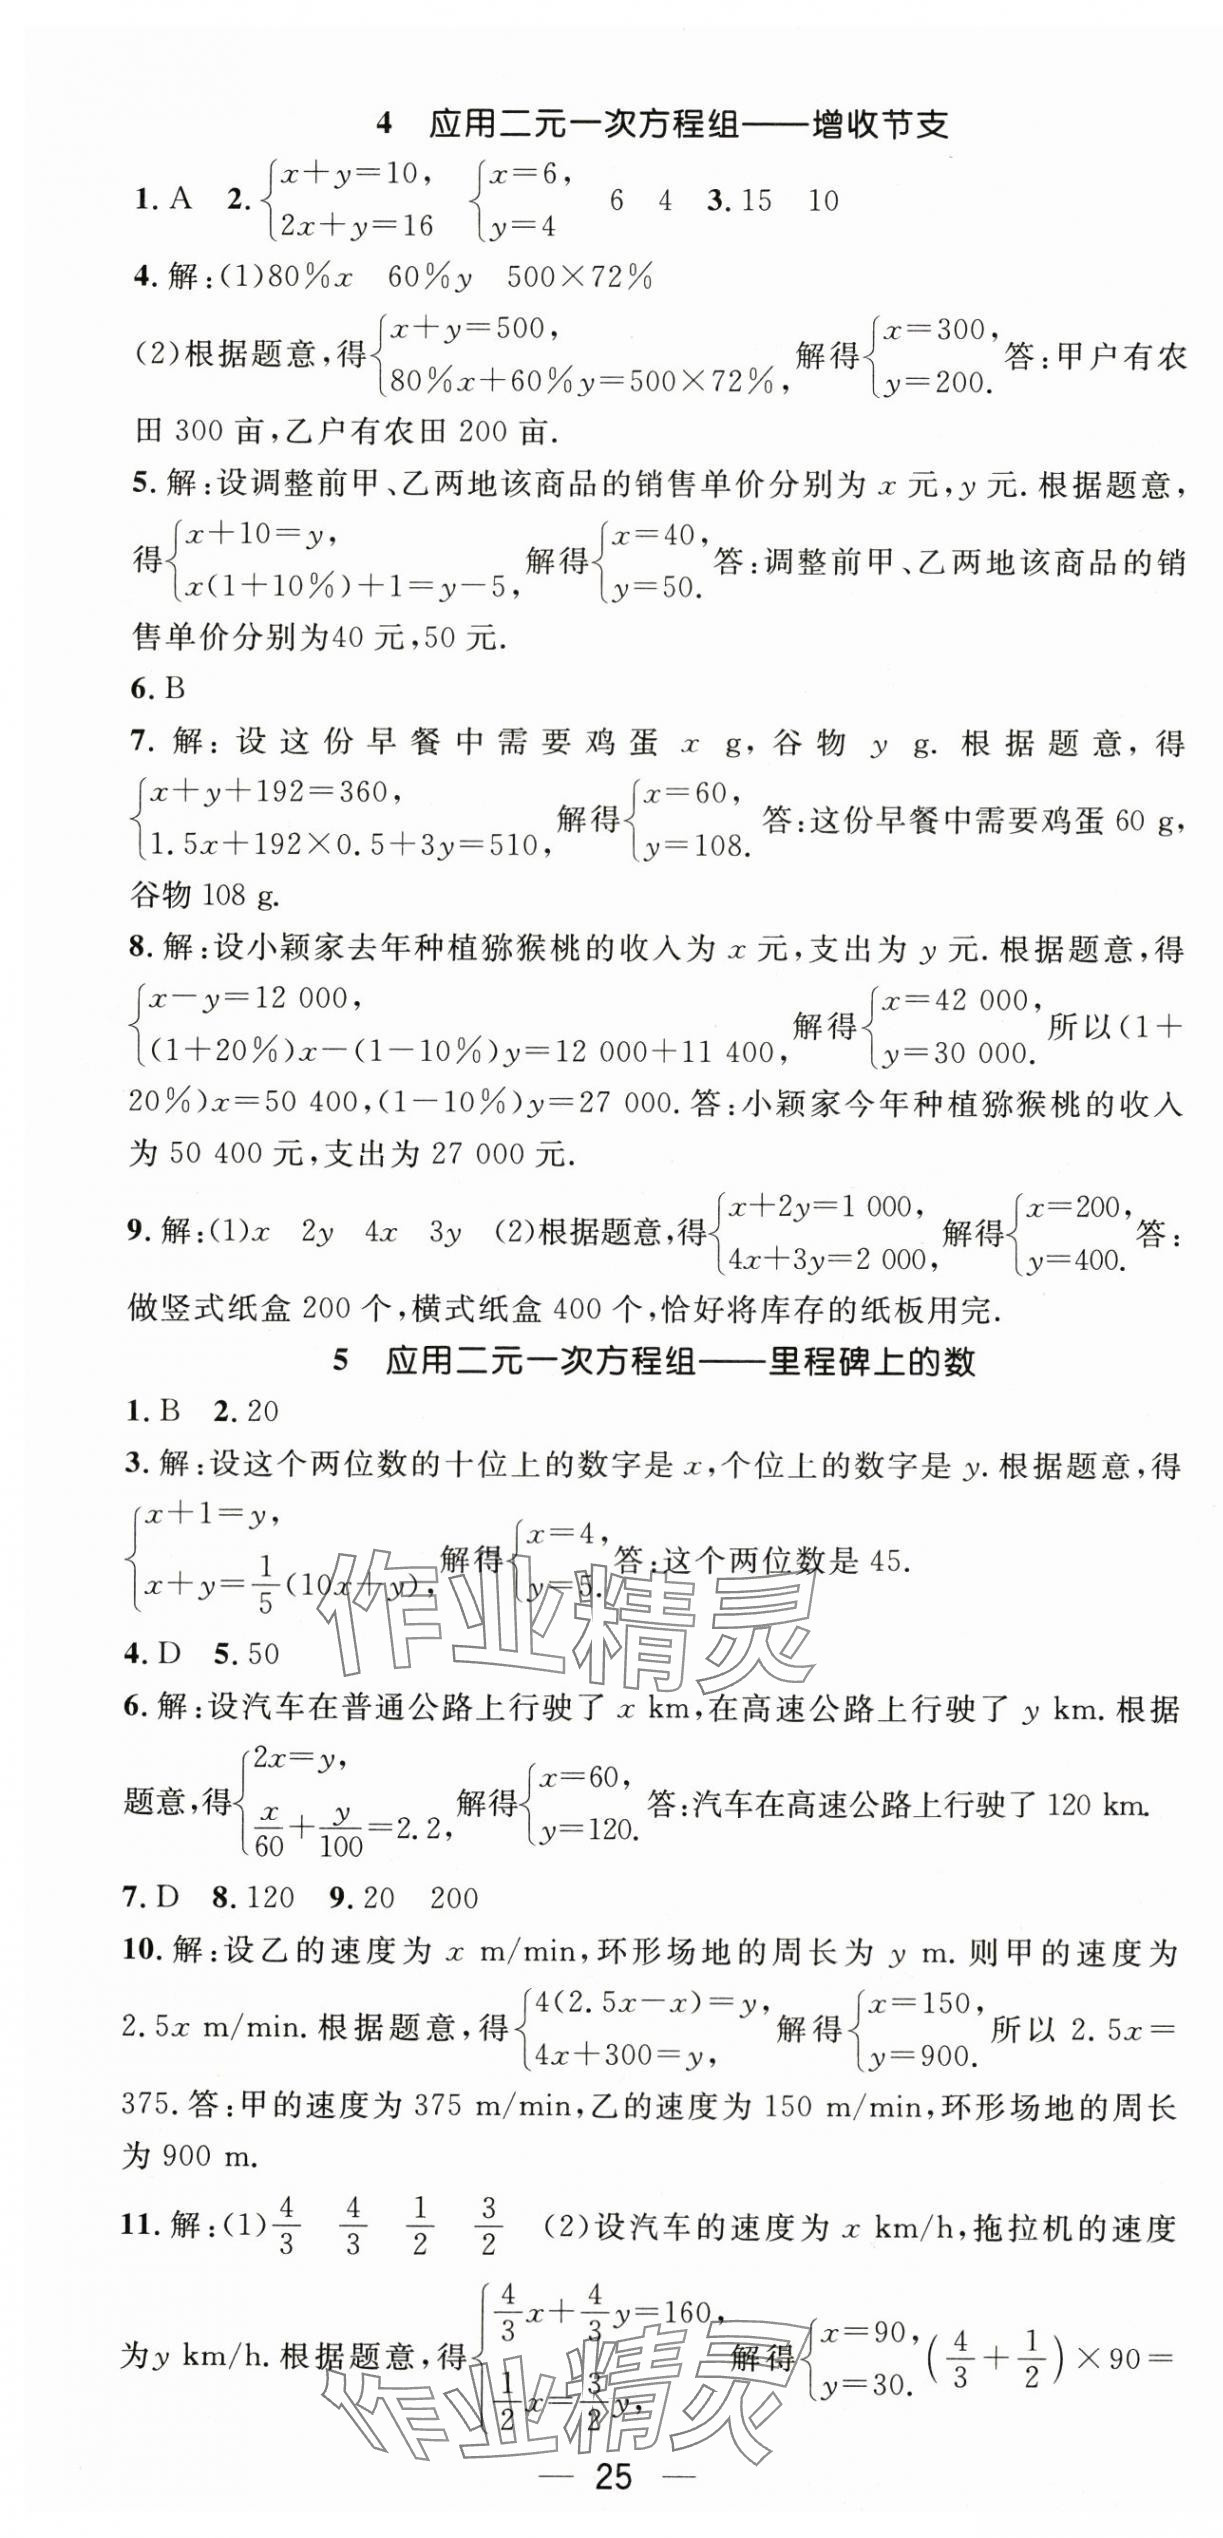 4 应用二元一次方程组——增收节支
1. A 2. {x+y=10, 2x+y=16 {x=6, y=4 6 4 3. 15 10
4. 解:(1)80%x 60%y 500×72%
(2)根据题意,得{x+y=500, 80%x+60%y=500×72%, 解得{x=300, y=200. 答:甲户有农
田 300 亩,乙户有农田 200 亩.
5. 解:设调整前甲、乙两地该商品的销售单价分别为 x 元,y 元. 根据题意,
得{x+10=y, x(1+10%)+1=y-5, 解得{x=40, y=50. 答:调整前甲、乙两地该商品的销
售单价分别为40 元,50 元.
6. B
7. 解:设这份早餐中需要鸡蛋 x g,谷物 y g. 根据题意,得
{x+y+192=360, 1.5x+192×0.5+3y=510, 解得{x=60, y=108. 答:这份早餐中需要鸡蛋 60 g,
谷物 108 g.
8. 解:设小颖家去年种植猕猴桃的收入为 x 元,支出为 y 元. 根据题意,得
{x-y=12 000, (1+20%)x-(1-10%)y=12 000+11 400, 解得{x=42 000, y=30 000. 所以(1+
20%)x=50 400,(1-10%)y=27 000. 答:小颖家今年种植猕猴桃的收入
为 50 400 元,支出为 27 000 元.
9. 解:(1)x 2y 4x 3y (2)根据题意,得{x+2y=1 000, 4x+3y=2 000, 解得{x=200, y=400. 答:
做竖式纸盒 200 个,横式纸盒 400 个,恰好将库存的纸板用完.
5 应用二元一次方程组——里程碑上的数
1. B 2. 20
3. 解:设这个两位数的十位上的数字是 x,个位上的数字是 y. 根据题意,得
{x+1=y, x+y=1/5(10x+y), 解得{x=4, y=5. 答:这个两位数是 45.
4. D 5. 50
6. 解:设汽车在普通公路上行驶了 x km,在高速公路上行驶了 y km. 根据
题意,得{2x=y, x/60+y/100=2.2, 解得{x=60, y=120. 答:汽车在高速公路上行驶了 120 km.
7. D 8. 120 9. 20 200
10. 解:设乙的速度为 x m/min,环形场地的周长为 y m. 则甲的速度为
2.5x m/min. 根据题意,得{4(2.5x-x)=y, 4x+300=y, 解得{x=150, y=900. 所以 2.5x=
375. 答:甲的速度为 375 m/min,乙的速度为 150 m/min,环形场地的周长
为 900 m.
11. 解:(1)4/3 4/3 1/2 3/2 (2)设汽车的速度为 x km/h,拖拉机的速度
为y km/h. 根据题意,得{4/3x+4/3y=160, 1/2x=3/2y, 解得{x=90, y=30. (4/3+1/2)×90=
— 25 —
作业精灵
作业精灵